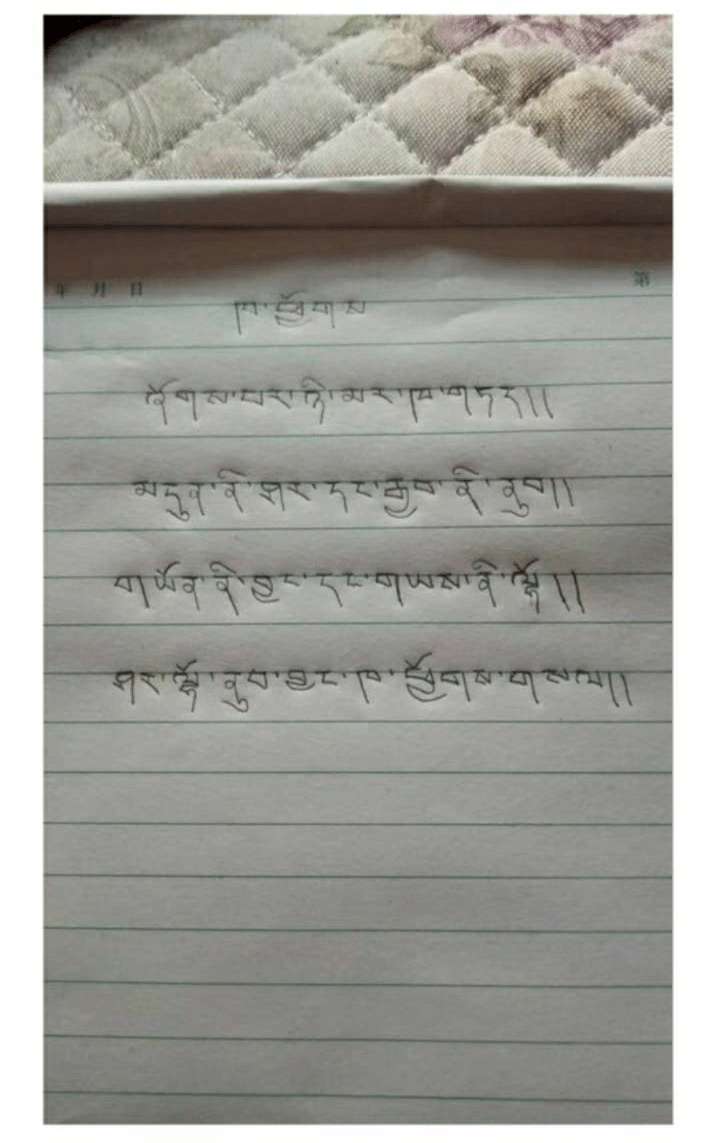 年 月 日
第
ཁ་ཕྱོགས
ཞོགས་པར་ཉི་མར་ཁ་གཏད།།
མདུན་ནི་ཤར་དང་རྒྱབ་ནི་ནུབ།།
གཡོན་ནི་བྱང་དང་གཡས་ནི་ལྷོ།།
ཤར་ལྷོ་ནུབ་བྱང་ཁ་ཕྱོགས་གསལ།།